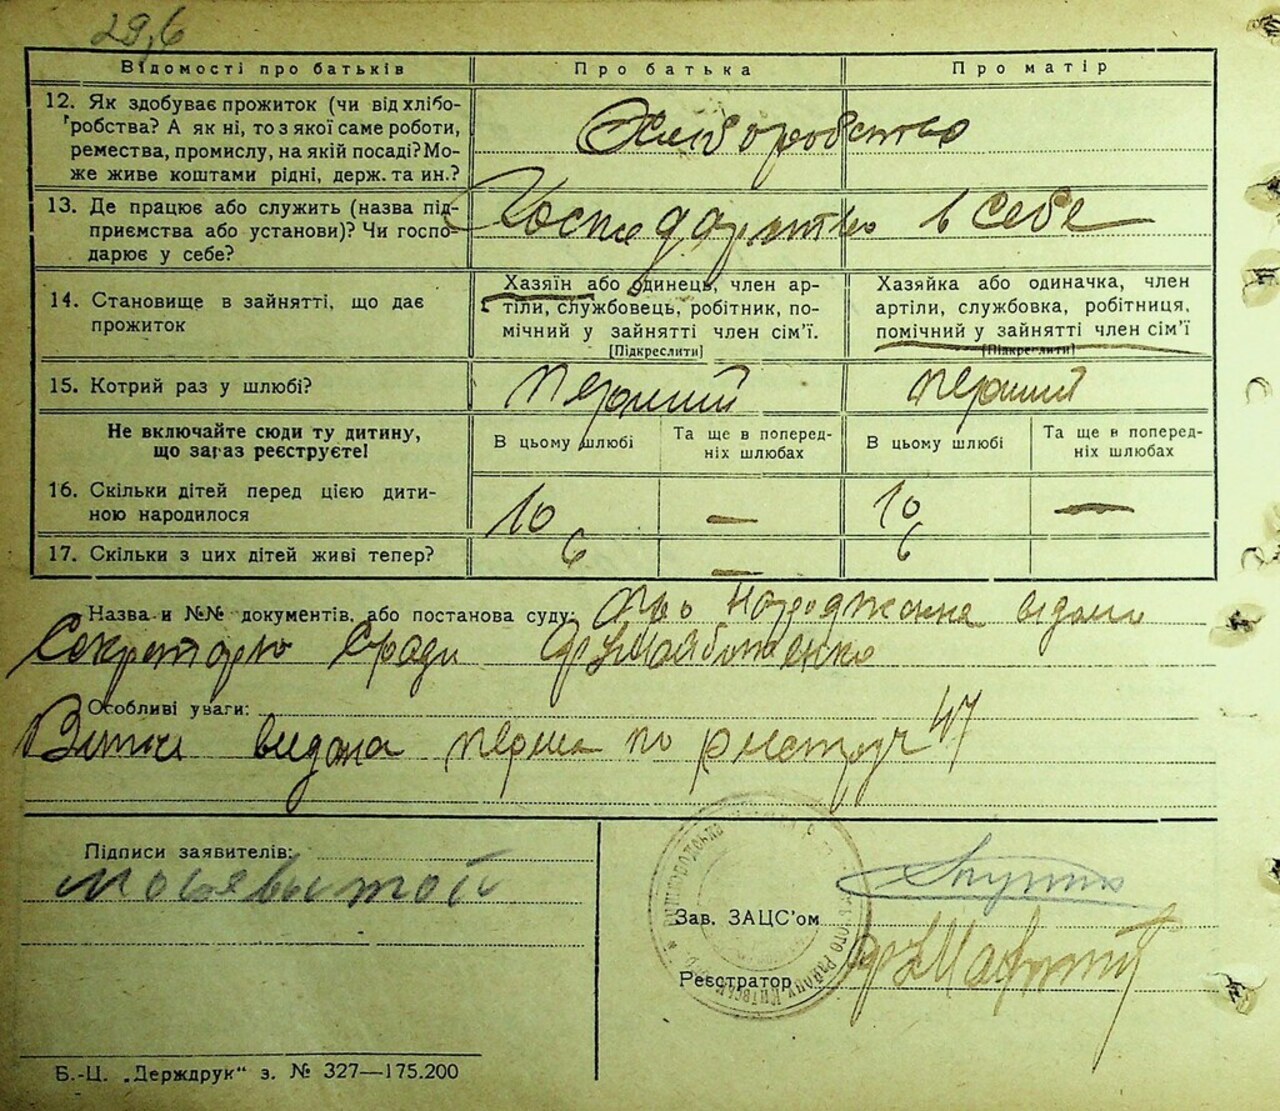 29,6
Відомості про батьків
Про батька
Про матір
12. Як здобуває прожиток (чи від хлібо-
робства? А як ні, то з якої саме роботи,
ремества, промислу, на якій посаді? Мо-
же живе коштами рідні, держ. та ин.?
Хліборобство
13. Де працює або служить (назва під-
приємства або установи)? Чи госпо-
дарює у себе?
Господарство в себе
14. Становище в зайнятті, що дає
прожиток
Хазяїн або одинець, член ар-
тіли, службовець, робітник, по-
мічний у зайнятті член сім’ї.
[Підкреслити]
Хазяйка або одиначка, член
артіли, службовка, робітниця,
помічний у зайнятті член сім’ї
[Підкреслити]
15. Котрий раз у шлюбі?
перший
перший
Не включайте сюди ту дитину,
що зараз реєструєте!
В цьому шлюбі
Та ще в поперед-
ніх шлюбах
В цьому шлюбі
Та ще в поперед-
ніх шлюбах
16. Скільки дітей перед цією дити-
ною народилося
10
—
10
—
17. Скільки з цих дітей живі тепер?
6
—
6
Назва и №№ документів, або постанова суду: народження відомо
Секретарю Сради
Особливі уваги:
видана перша по реєстру 47
Підписи заявителів:
Зав. ЗАЦС’ом
Реєстратор
Б.-Ц. „Держдрук“ з. № 327—175.200